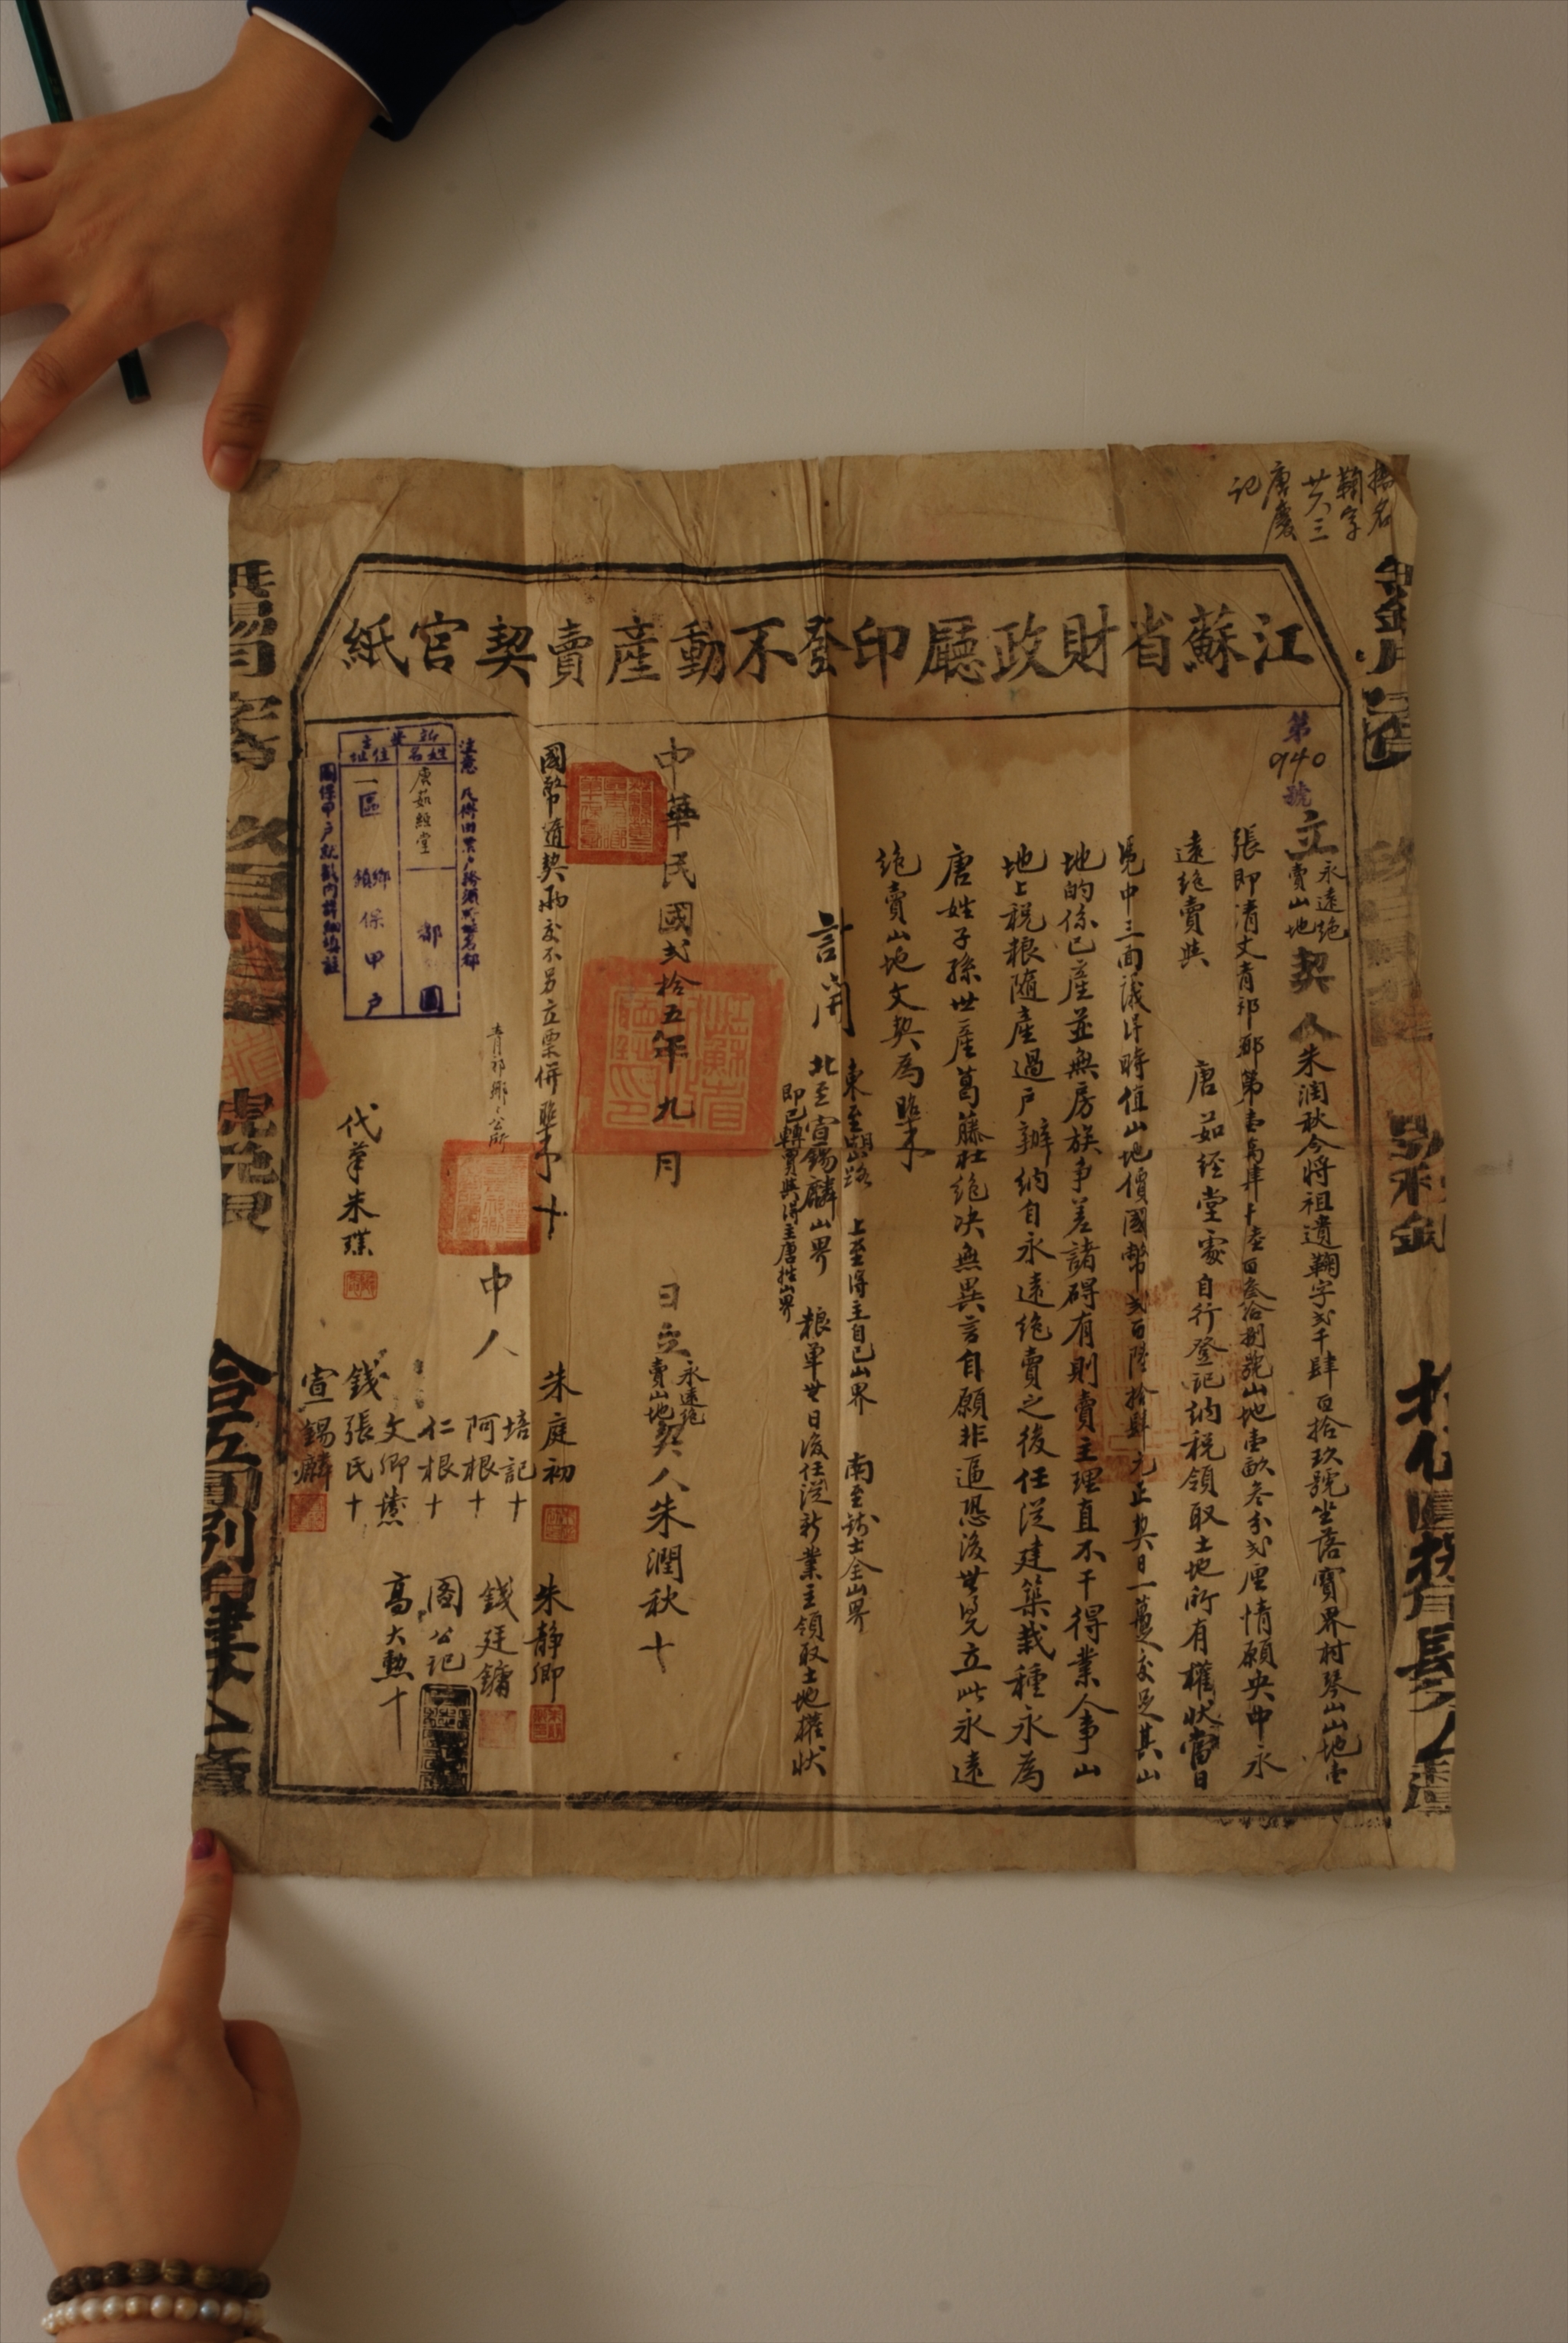 江蘇省財政廳印發不動產賣契官紙
鞠字
唐慶
記
第940號
立永遠絕賣山地契人朱潤秋今將祖遺鞠字弍千肆百拾玖號坐落寶界村琴山山地壹
張即清丈青祁鄉第壹萬肆千壹百叁拾捌號山地壹畝叁分弍厘情願央中永
遠絕賣與 唐茹經堂處自行登記納稅領取土地所有權狀當日
憑中三面議得時值山地價國幣弍百陸拾肆元正契日一併交足其山
地的係己產並無房族爭差諸碍有則賣主理直不干得業人事山
地上稅粮隨產過戶辦納自永遠絕賣之後任從建築栽種永為
唐姓子孫世產葛藤杜絕决無異言自願非逼恐後無憑立此永遠
絕賣山地文契為照
計開
東至路 上至得主自己山界 南至錢士全山界
北至宣錫麟山界 粮單廿日後任從新業主領取土地權狀
即已轉賣與得主唐姓山界
中華民國弍拾五年九月 日立永遠絕賣山地契人朱潤秋十
國幣隨契兩交不另立票併照 十
朱庭初 朱靜卿
青祁鄉公所
中人
培記十
阿根十 錢廷鏞
仁根十 圖公記
文卿 高大勲十
錢張氏十
宣錫麟
代筆朱璞
新業主
姓名 唐茹經堂 都 圖
住址 一區 鄉鎮 保 甲 戶